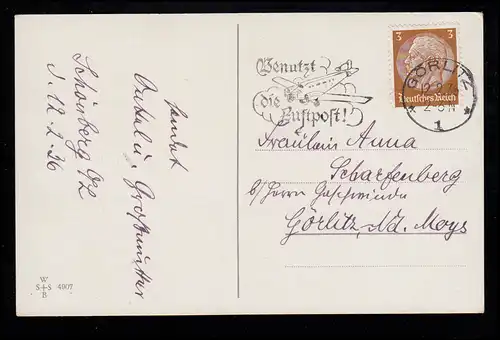 sendet
Onkel u. Großmutter.
Schönberg O/L
d. 12.2.36
W
S+S 4907
B
Benutzt
die
Luftpost!
3 3
Deutsches Reich
GÖRLITZ
1
Fräulein Anna
Scharfenberg
b/ Herrn Geschwinde
Görlitz, Nd. Moys